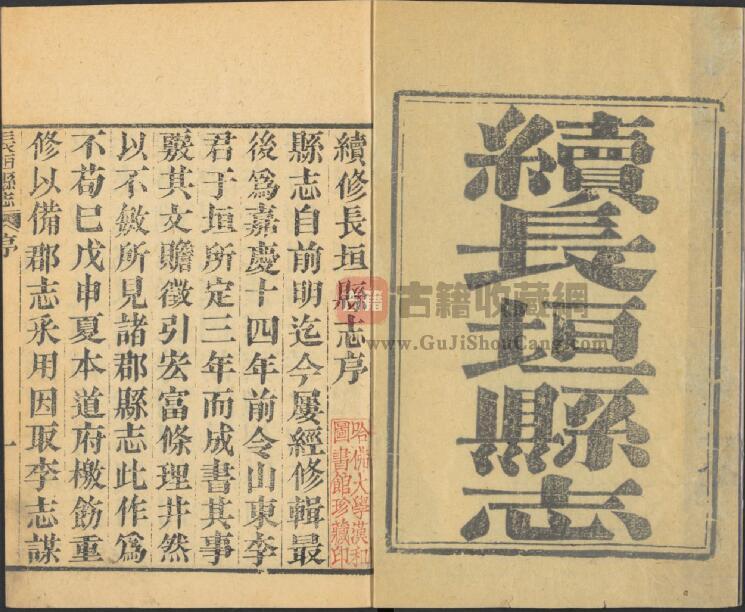 續長垣縣志
續修長垣縣志序
縣志自前明迄今屢經修輯最
後爲嘉慶十四年前令山東李
君于垣所定三年而成書其事
覈其文贍徵引宏富條理井然
以不敏所見諸郡縣志此作爲
不苟巳戊申夏本道府檄飭重
修以備郡志采用因取李志謀
長垣縣志
序
一
哈佛大學漢和
圖書館珍藏印
古籍
古籍收藏網
www.GuJiShouCang.com